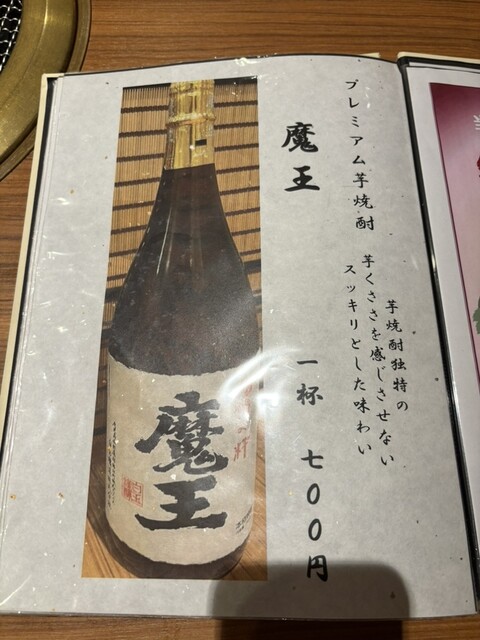 プレミアム芋焼酎
芋焼酎独特の
芋くささを感じさせない
スッキリとした味わい
魔王
一杯 七〇〇円
魔王